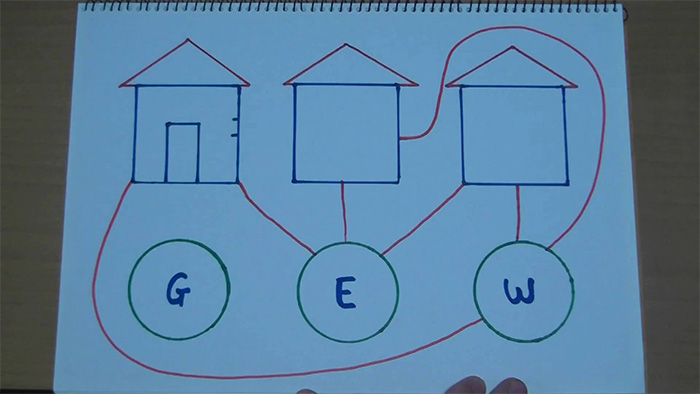 G E W